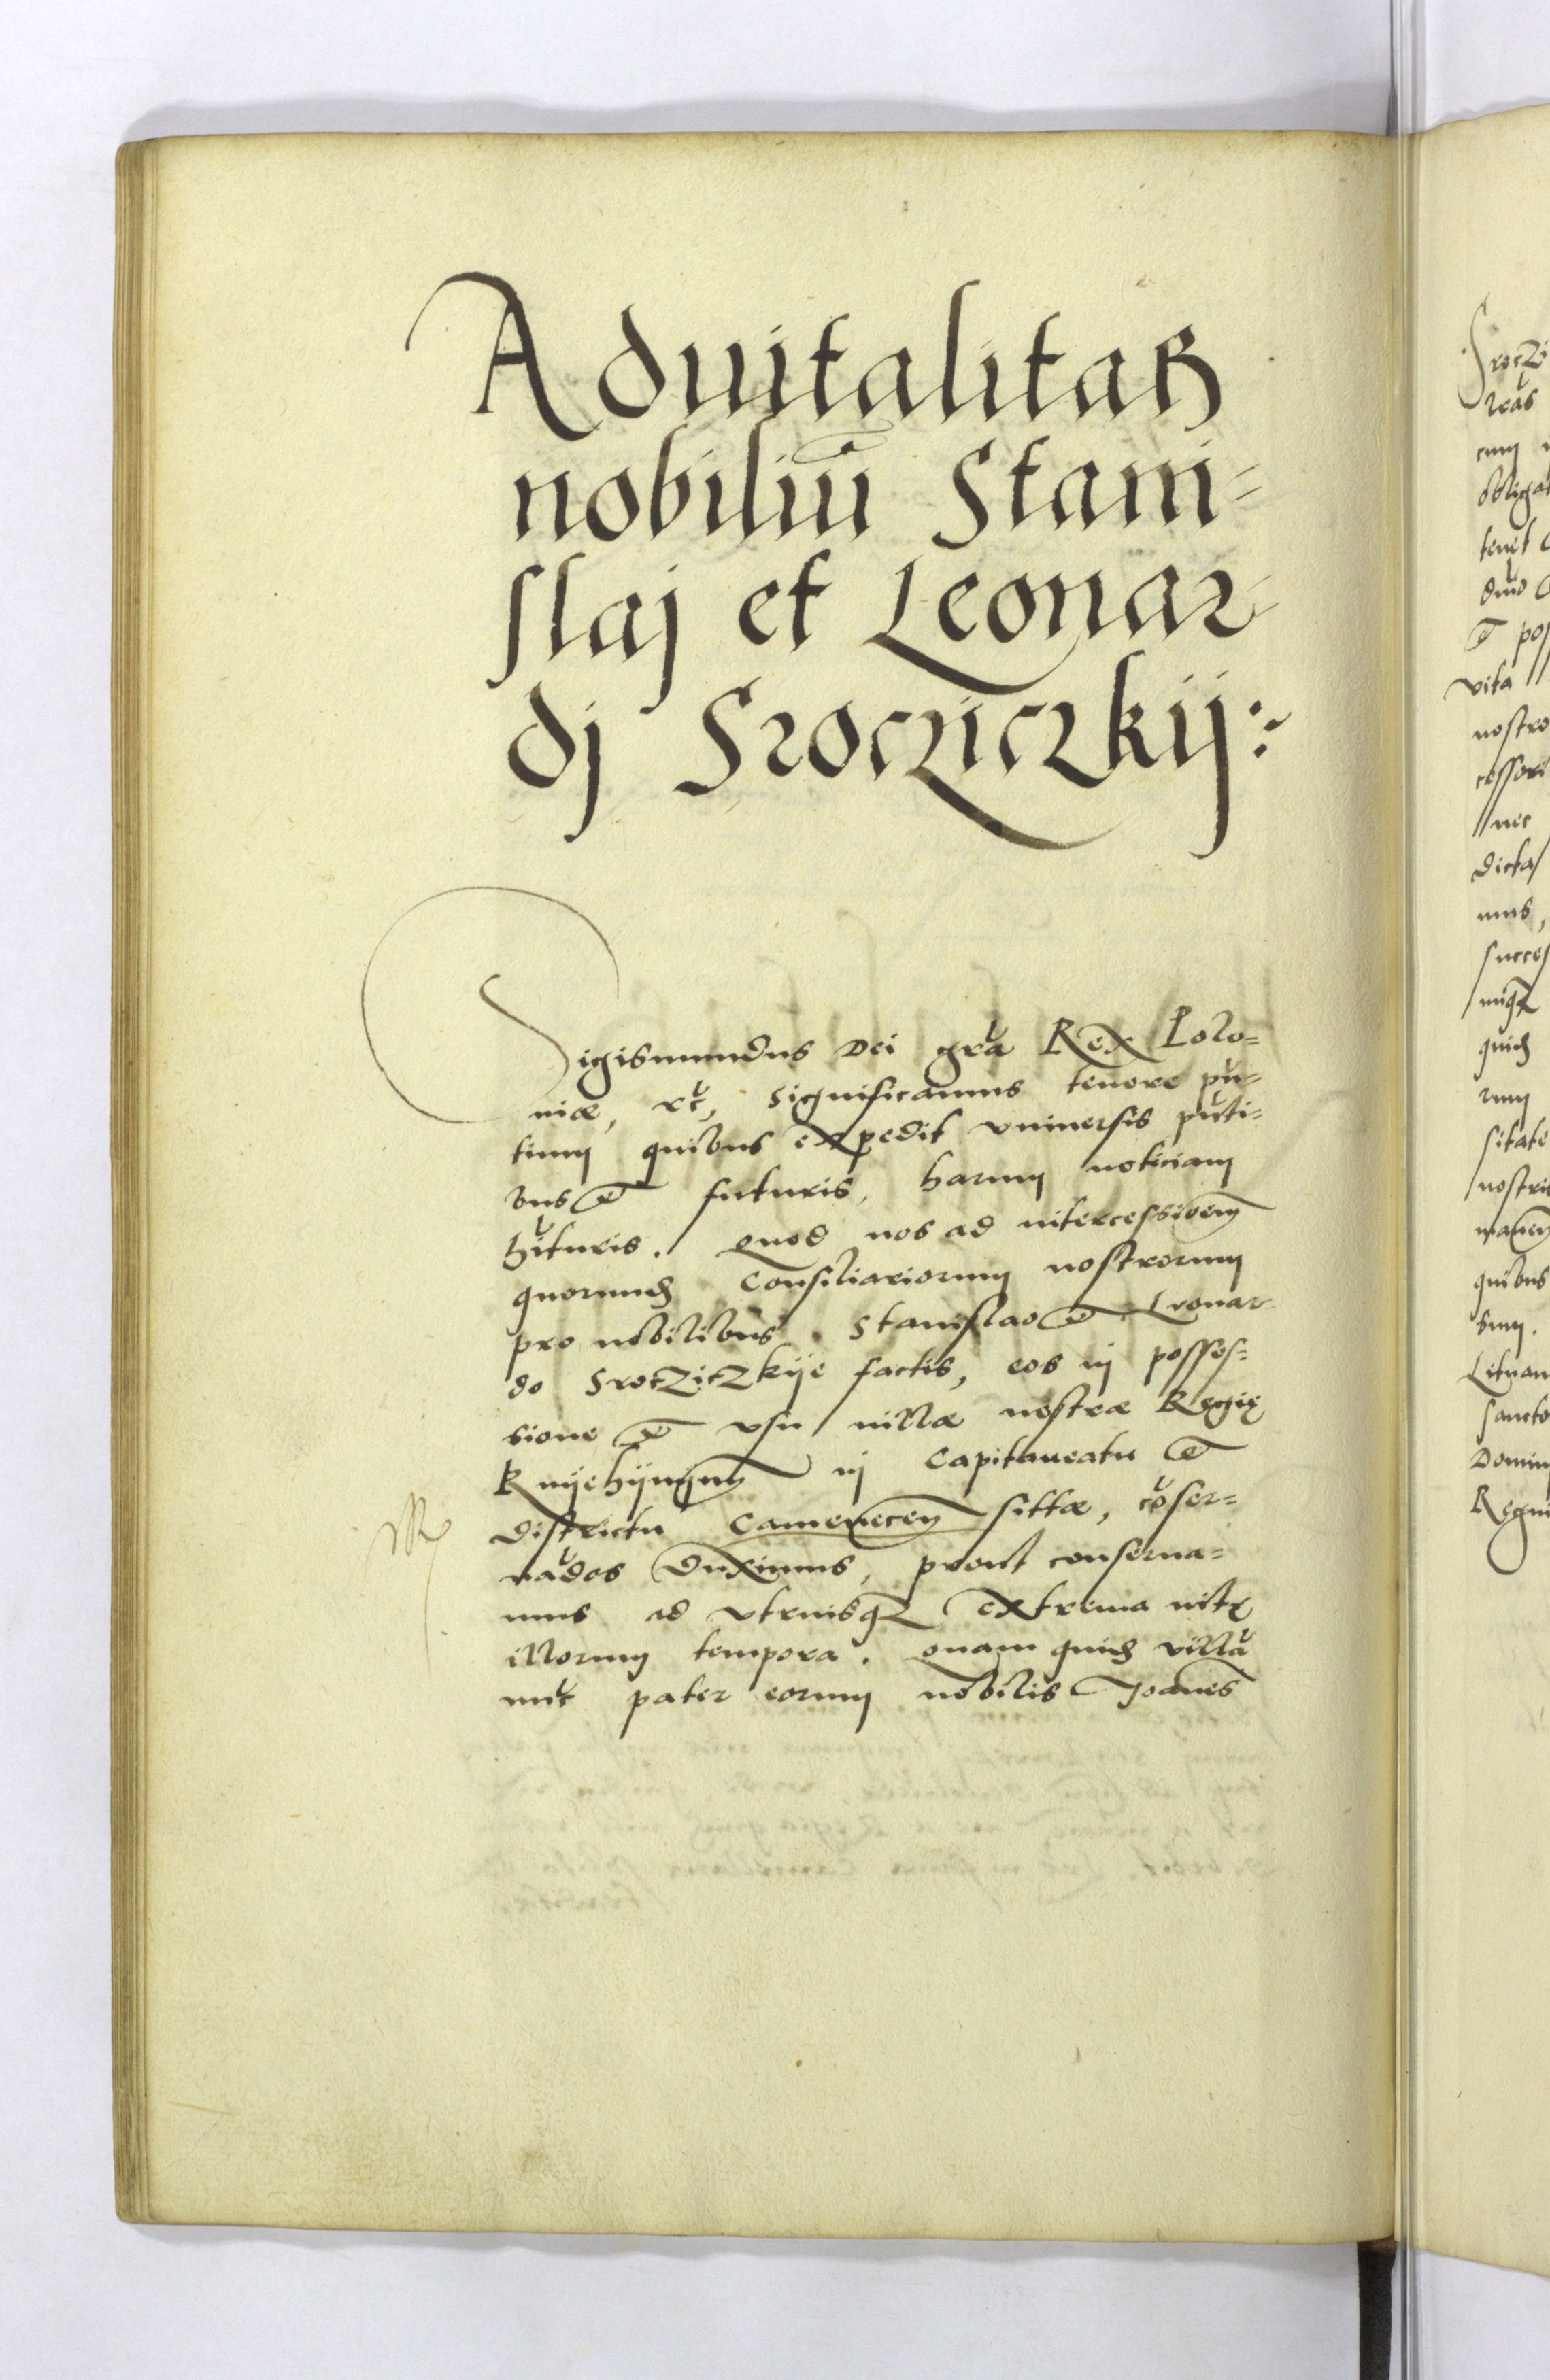 Aduitalitas
nobiliū Stani=
slaj et Leonar
dj Sroczÿczkij:
Sigismundus Dei gr̃a Rex Polo=
niæ, ꝛc̃, Significamus tenore pñ=
tium quibus expedit vniuersis pñti=
bus et futuris, harum noticiam
hituris. Quod nos ad intercessionem
quorundam Consiliariorum nostrorum
pro nobilibus Stanislao et Leonar
do Sroczÿczkije factis, eos in posses=
sione et vsu uillæ nostræ Regię
in Capitaneatu et
districtu Camenecen sittæ, cõser=
uãdos Duximus, prout conserua=
mus ad vtriusqꝫ extrema uitę
illorum tempora. Quam quidem villã
nũc pater eorum nobilis Joanes
Sroczi
uẽas
cum
obligat
tenet
et pos
vita
nostro
cessori
nec
dicta
mus,
succes
quidem
rum
sitate
nostris
manen
quibus
bium.
Lituan
sancto
Domin
Regni